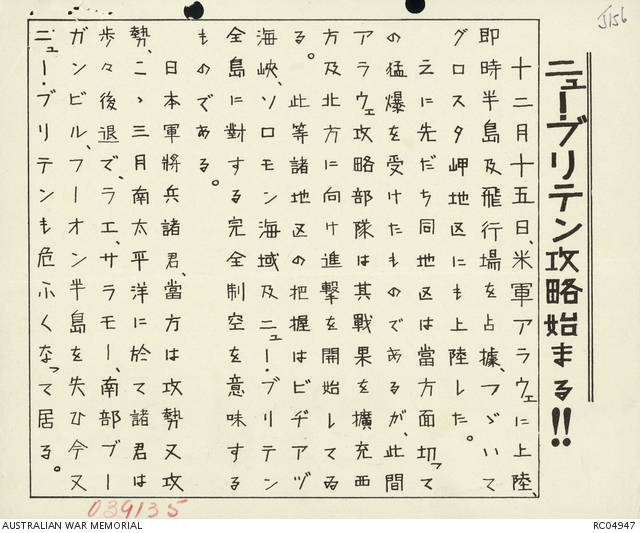 J156
ニュー・ブリテン攻略始まる!!
十二月十五日、米軍アラウェに上陸、
即時半島及飛行場を占據、つゞいて
グロスタ岬地区にも上陸した。
之に先だち同地区は當方面切って
の猛爆を受けたものであるが、此間
アラウェ攻略部隊は其戦果を擴充西
方及北方に向け進撃を開始してゐ
る。此等諸地区の把握はビヂアヅ
海峡、ソロモン海域及ニュー・ブリテン
全島に對する完全制空を意味する
ものである。
日本軍將兵諸君、當方は攻勢又攻
勢、こゝ三月南太平洋に於て諸君は
歩々後退で、ラエ、サラモー、南部ブー
ガンビル、フーオン半島を失ひ今又
ニュー・ブリテンも危ふくなって居る。
039135
AUSTRALIAN WAR MEMORIAL
RC04947